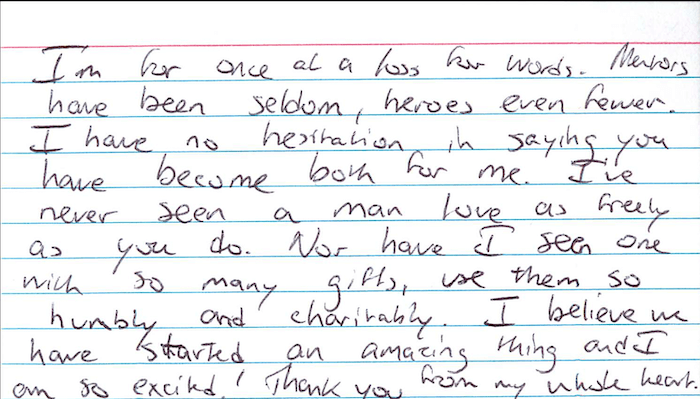 I'm for once at a loss for words. Mentors
have been seldom, heroes even fewer.
I have no hesitation in saying you
have become both for me. I've
never seen a man love as freely
as you do. Nor have I seen one
with so many gifts, use them so
humbly and charitably. I believe we
have started an amazing thing and I
am so excited! Thank you from my whole heart.